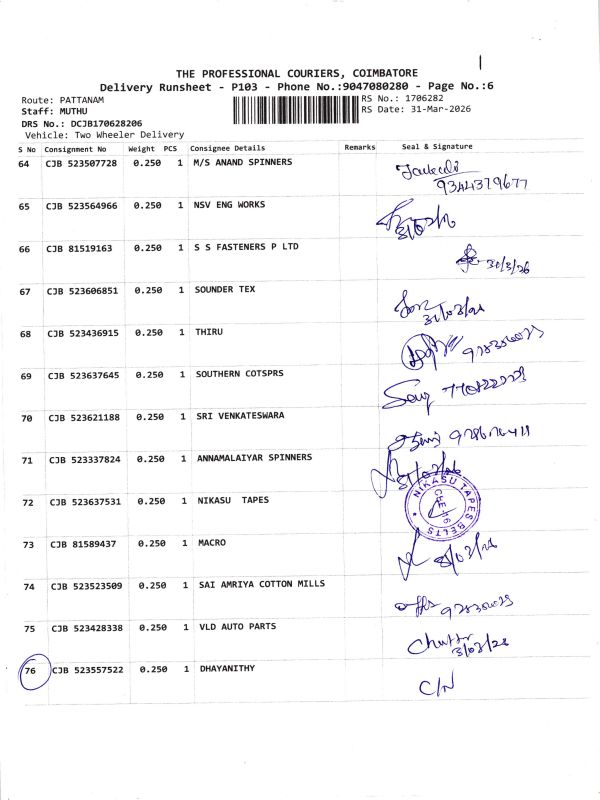 THE PROFESSIONAL COURIERS, COIMBATORE
Delivery Runsheet - P103 - Phone No.:9047080280 - Page No.:6
Route: PATTANAM
RS No.: 1706282
Staff: MUTHU
RS Date: 31-Mar-2026
DRS No.: DCJB170628206
Vehicle: Two Wheeler Delivery
S No Consignment No Weight PCS Consignee Details Remarks Seal & Signature
64 CJB 523507728 0.250 1 M/S ANAND SPINNERS
9344379677
65 CJB 523564966 0.250 1 NSV ENG WORKS
66 CJB 81519163 0.250 1 S S FASTENERS P LTD
31/3/26
67 CJB 523606851 0.250 1 SOUNDER TEX
68 CJB 523436915 0.250 1 THIRU
69 CJB 523637645 0.250 1 SOUTHERN COTSPRS
70 CJB 523621188 0.250 1 SRI VENKATESWARA
71 CJB 523337824 0.250 1 ANNAMALAIYAR SPINNERS
72 CJB 523637531 0.250 1 NIKASU TAPES
NIKASU TAPES BELTS
73 CJB 81589437 0.250 1 MACRO
74 CJB 523523509 0.250 1 SAI AMRIYA COTTON MILLS
75 CJB 523428338 0.250 1 VLD AUTO PARTS
76 CJB 523557522 0.250 1 DHAYANITHY
C/N